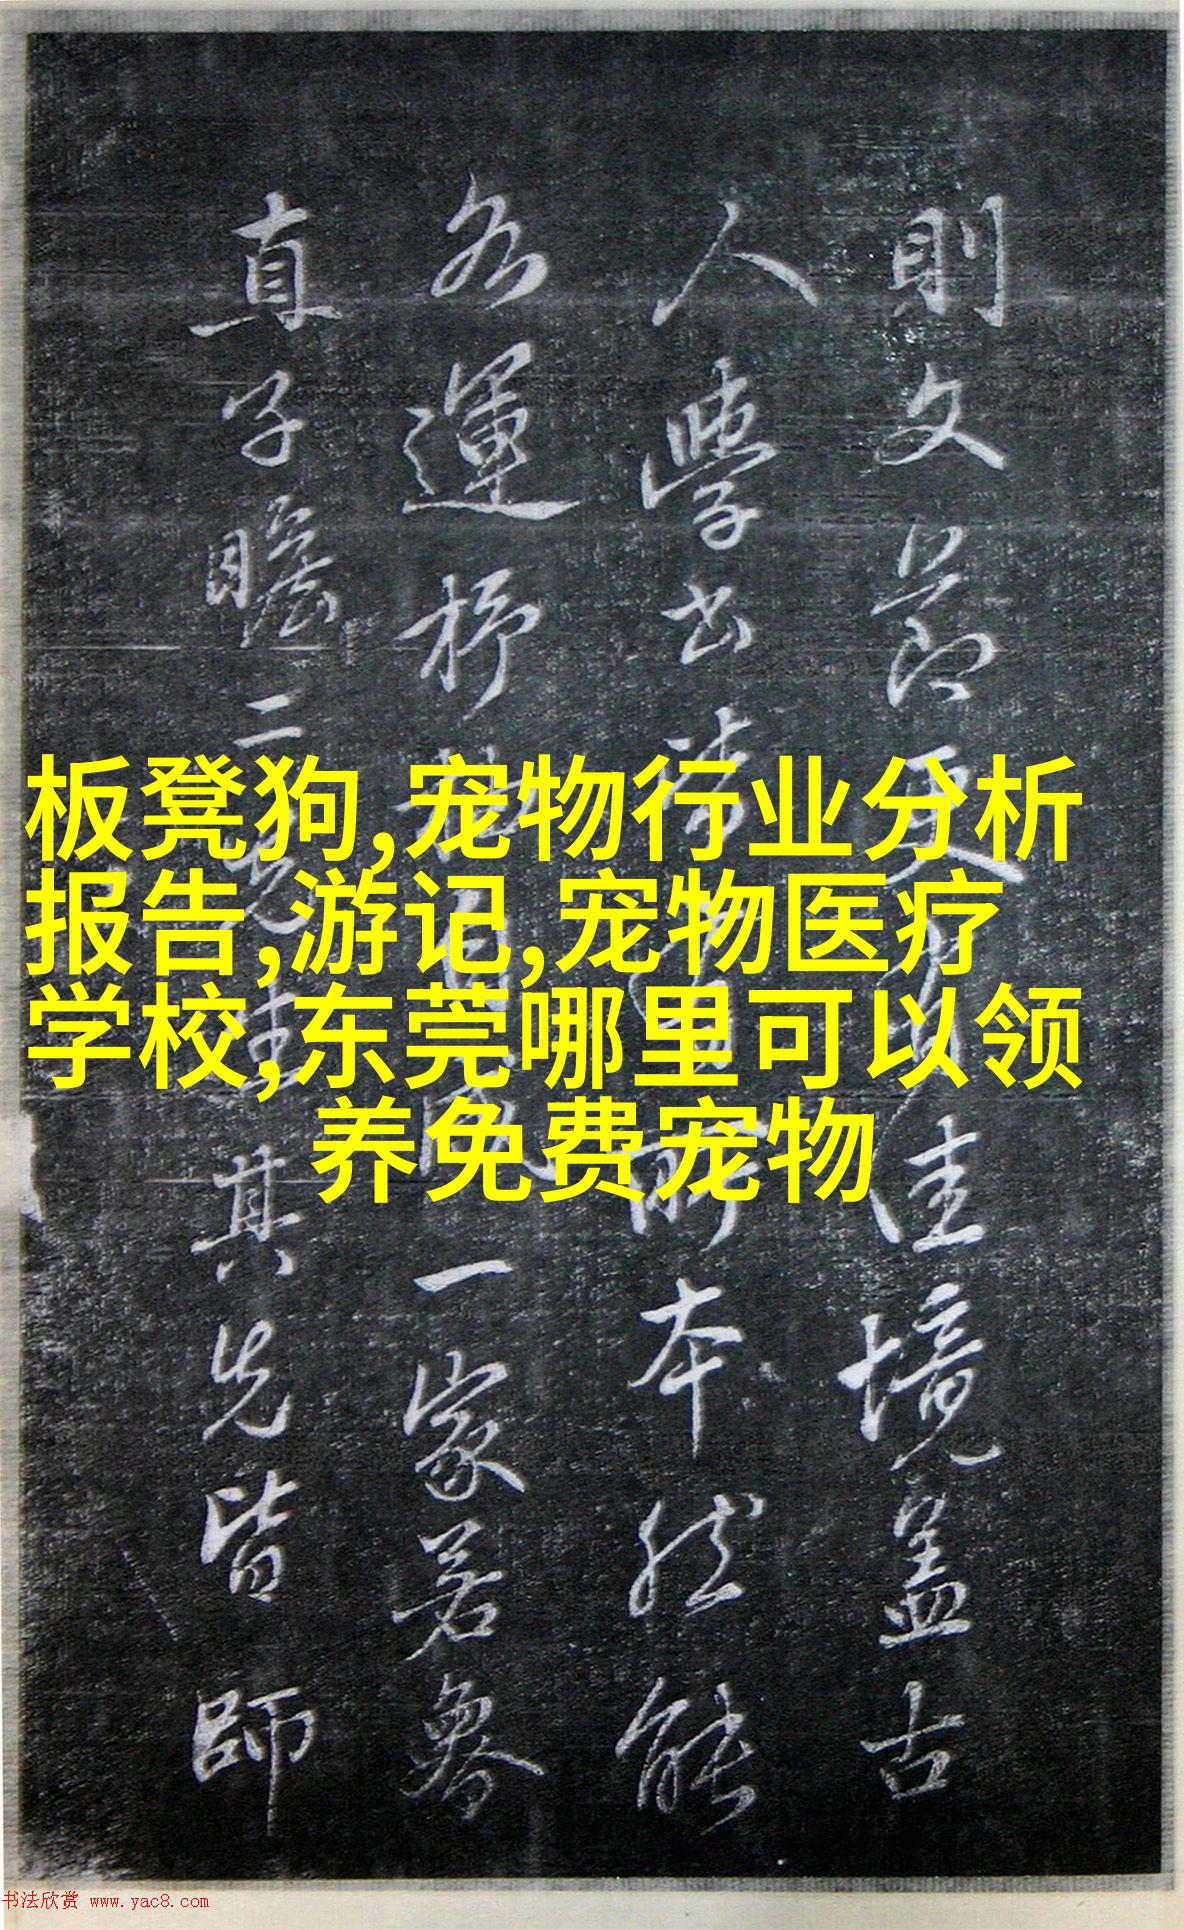 板凳狗,宠物行业分析
报告,游记,宠物医疗
学校,东莞哪里可以领
养免费宠物
則文節更佳境蓋古
人學書所本然能
各運抒一家若魯
直子瞻二其先皆師
书法欣赏 www.yac8.com